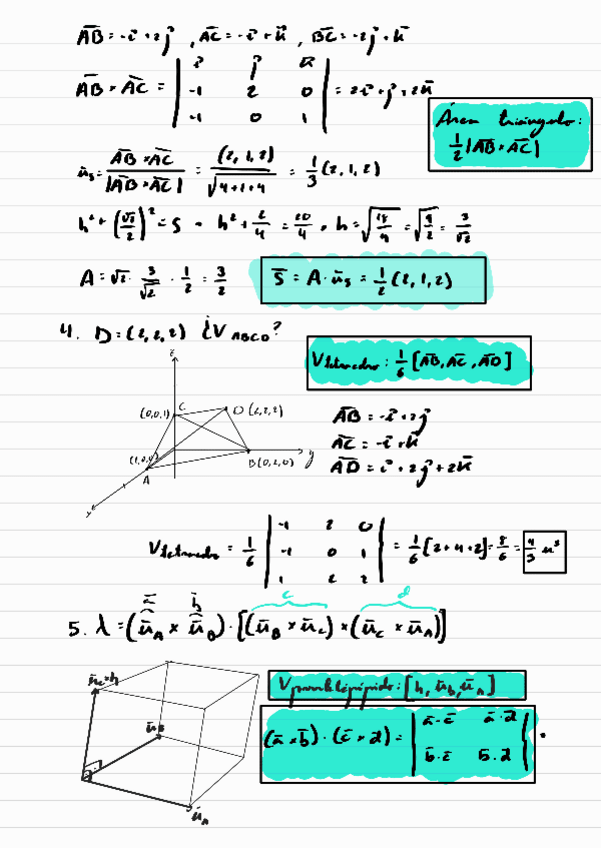 A̅B̅ = -i̅ + 2j̅ , A̅C̅ = -i̅ + k̅ , B̅C̅ = -2j̅ + k̅
A̅B̅ × A̅C̅ = | i̅ j̅ k̅ ; -1 2 0 ; -1 0 1 | = 2i̅ + j̅ + 2k̅
Área triángulo:
1/2 |A̅B̅ × A̅C̅|
ū_s = A̅B̅ × A̅C̅ / |A̅B̅ × A̅C̅| = (2, 1, 2) / √(4+1+4) = 1/3 (2, 1, 2)
h² + (√2/2)² = 5 → h² + 2/4 = 20/4 → h = √(18/4) = √(9/2) = 3/√2
A = √2 · 3/√2 · 1/2 = 3/2
S̅ = A · ū_s = 1/2 (2, 1, 2)
4. D = (2, 2, 2) ¿V ABCD?
V tetraedro : 1/6 [A̅B̅, A̅C̅, A̅D̅]
z
(0,0,1) C
D (2,2,2)
(1,0,0)
A
B (0,2,0)
y
x
A̅B̅ = -i̅ + 2j̅
A̅C̅ = -i̅ + k̅
A̅D̅ = i̅ + 2j̅ + 2k̅
V tetraedro = 1/6 | -1 2 0 ; -1 0 1 ; 1 2 2 | = 1/6 [2+4+2] = 8/6 = 4/3 u³
a̅ b̅ c d
5. λ = (ū_A × ū_B) · [(ū_B × ū_C) × (ū_C × ū_A)]
V paralelepípedo : [h, ū_b, ū_A]
(a̅ × b̅) · (c̅ × d̅) = | a̅·c̅ a̅·d̅ ; b̅·c̅ b̅·d̅ | .
ū_B
ū_A